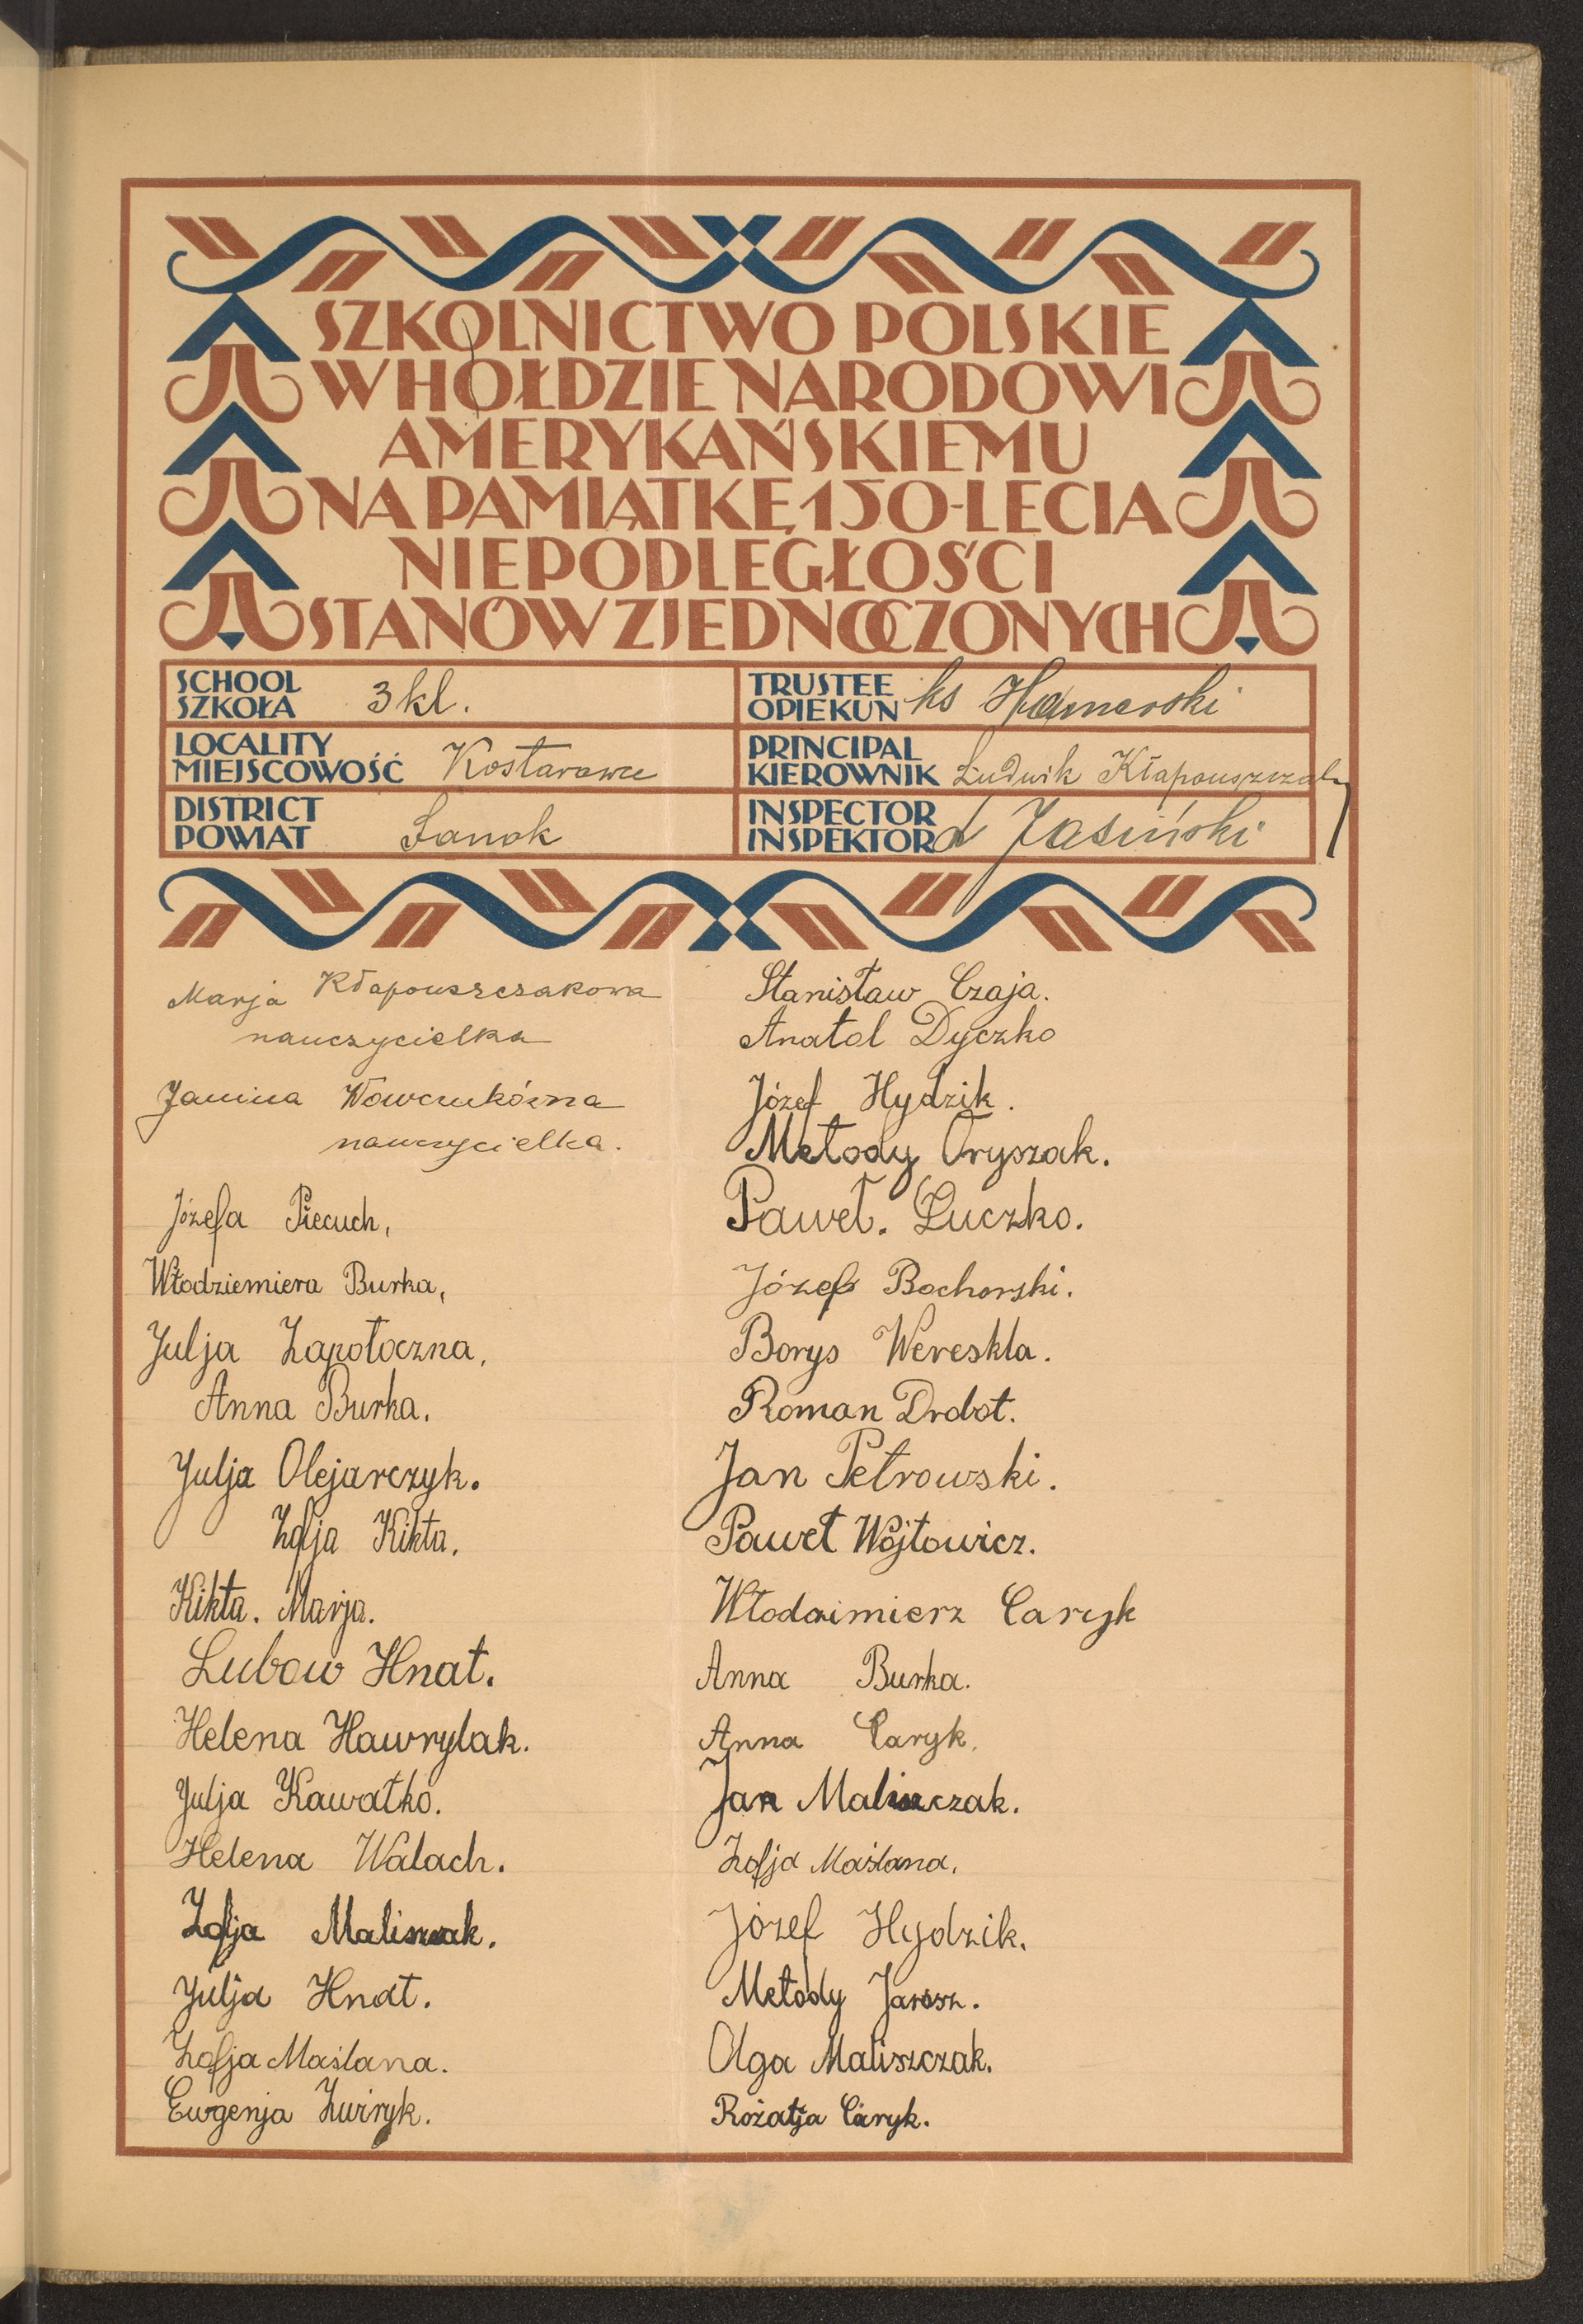 SZKOLNICTWO POLSKIE
W HOŁDZIE NARODOWI
AMERYKAŃSKIEMU
NA PAMIĄTKĘ 150-LECIA
NIEPODLEGŁOŚCI
STANÓW ZJEDNOCZONYCH
SCHOOL
SZKOŁA 3 kl.
LOCALITY
MIEJSCOWOŚĆ Kostarowce
DISTRICT
POWIAT Sanok
TRUSTEE
OPIEKUN ks Hamerski
PRINCIPAL
KIEROWNIK Ludwik Kłapouszczak
INSPECTOR
INSPEKTOR Jasiński
Marja Kłapouszczakowa
nauczycielka
Janina Wowczukówna
nauczycielka.
Józefa Piecuch,
Włodziemiera Burka,
Julja Zapotoczna,
Anna Burka.
Julja Olejarczyk.
Zofja Kikta.
Kikta. Marja.
Lubow Hnat.
Helena Hawrylak.
Julja Kawałko.
Helena Walach.
Zofja Maliszczak.
Julja Hnat.
Zofja Maślana.
Eugenja Żwiryk.
Stanisław Czaja.
Anatol Dyczko
Józef Hydzik.
Metody Oryszak.
Paweł. Łuczko.
Józef Bochorski.
Borys Wereskla.
Roman Drobot.
Jan Petrowski.
Paweł Wojtowicz.
Włodzimierz Caryk
Anna Burka.
Anna Caryk.
Jan Maliszczak.
Zofja Maślana.
Józef Hydzik.
Metody Jarosz.
Olga Maliszczak.
Rozalja Caryk.